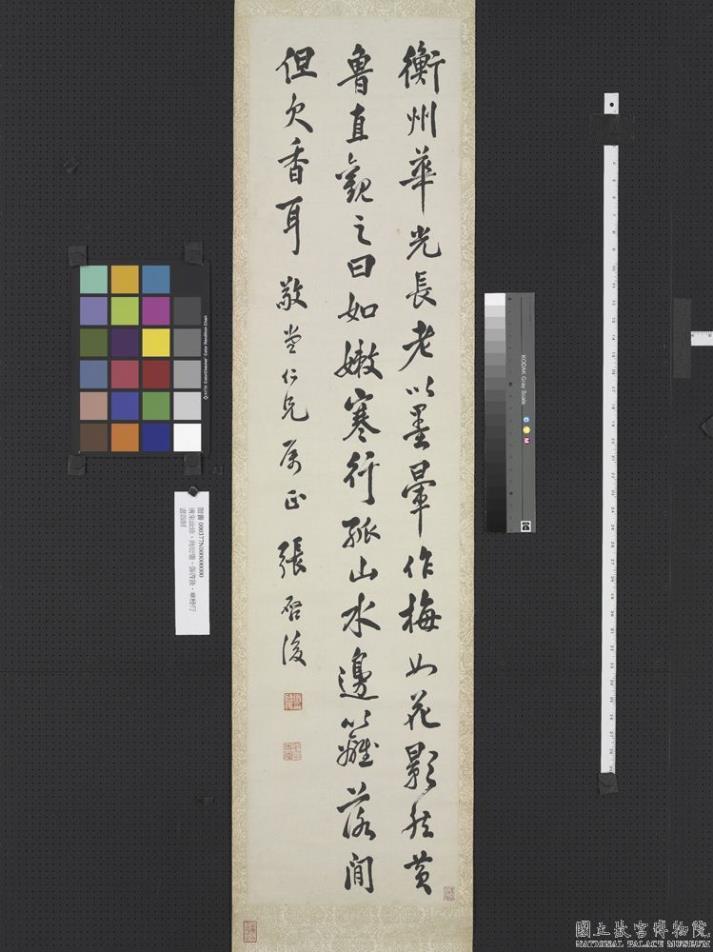 衡州華光長老以墨暈作梅如花影然黃
魯直觀之曰如嫩寒行孤山水邊籬落間
但欠香耳 敬堂仁兄屬正 張啓後
KODAK Gray Scale
國立故宮博物院
NATIONAL PALACE MUSEUM